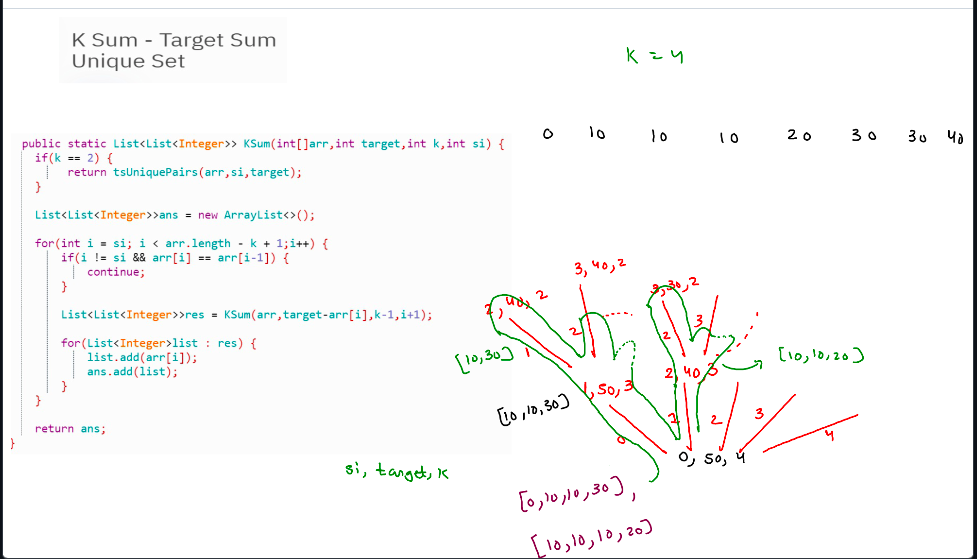 K Sum - Target Sum
Unique Set
K = 4
0 10 10 10 20 30 30 40
public static List<List<Integer>> KSum(int[]arr,int target,int k,int si) {
if(k == 2) {
return tsUniquePairs(arr,si,target);
}
List<List<Integer>>ans = new ArrayList<>();
for(int i = si; i < arr.length - k + 1;i++) {
if(i != si && arr[i] == arr[i-1]) {
continue;
}
List<List<Integer>>res = KSum(arr,target-arr[i],k-1,i+1);
for(List<Integer>list : res) {
list.add(arr[i]);
ans.add(list);
}
}
return ans;
}
si, target, K
3,40,2
2,40,2
3,30,2
2
2
3
[10,30]
1
2,40,3
[10,10,20]
1,50,3
[10,10,30]
0
1
2
3
4
0, 50, 4
[0,10,10,30],
[10,10,10,20]